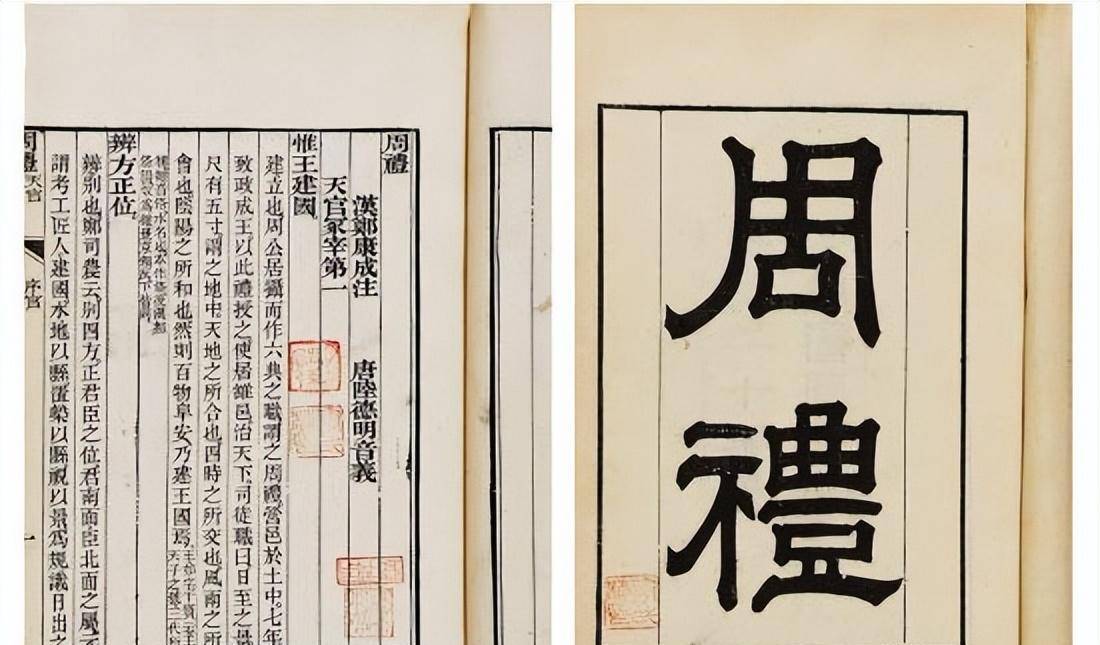 周禮
周禮
漢鄭康成注 唐陸德明音義
天官冢宰第一
惟王建國
建立也周公居攝而作六典之職謂之周禮營邑於土中七年
致政成王以此禮授之使居雒邑治天下司徒職曰日至之景
尺有五寸謂之地中天地之所合也四時之所交也風雨之所
會也陰陽之所和也然則百物阜安乃建王國焉
辨方正位
辨別也鄭司農云別四方正君臣之位君南面臣北面之屬
謂考工匠人建國水地以縣置槷以縣視以景爲規識日出之
周禮 天官 序官 一